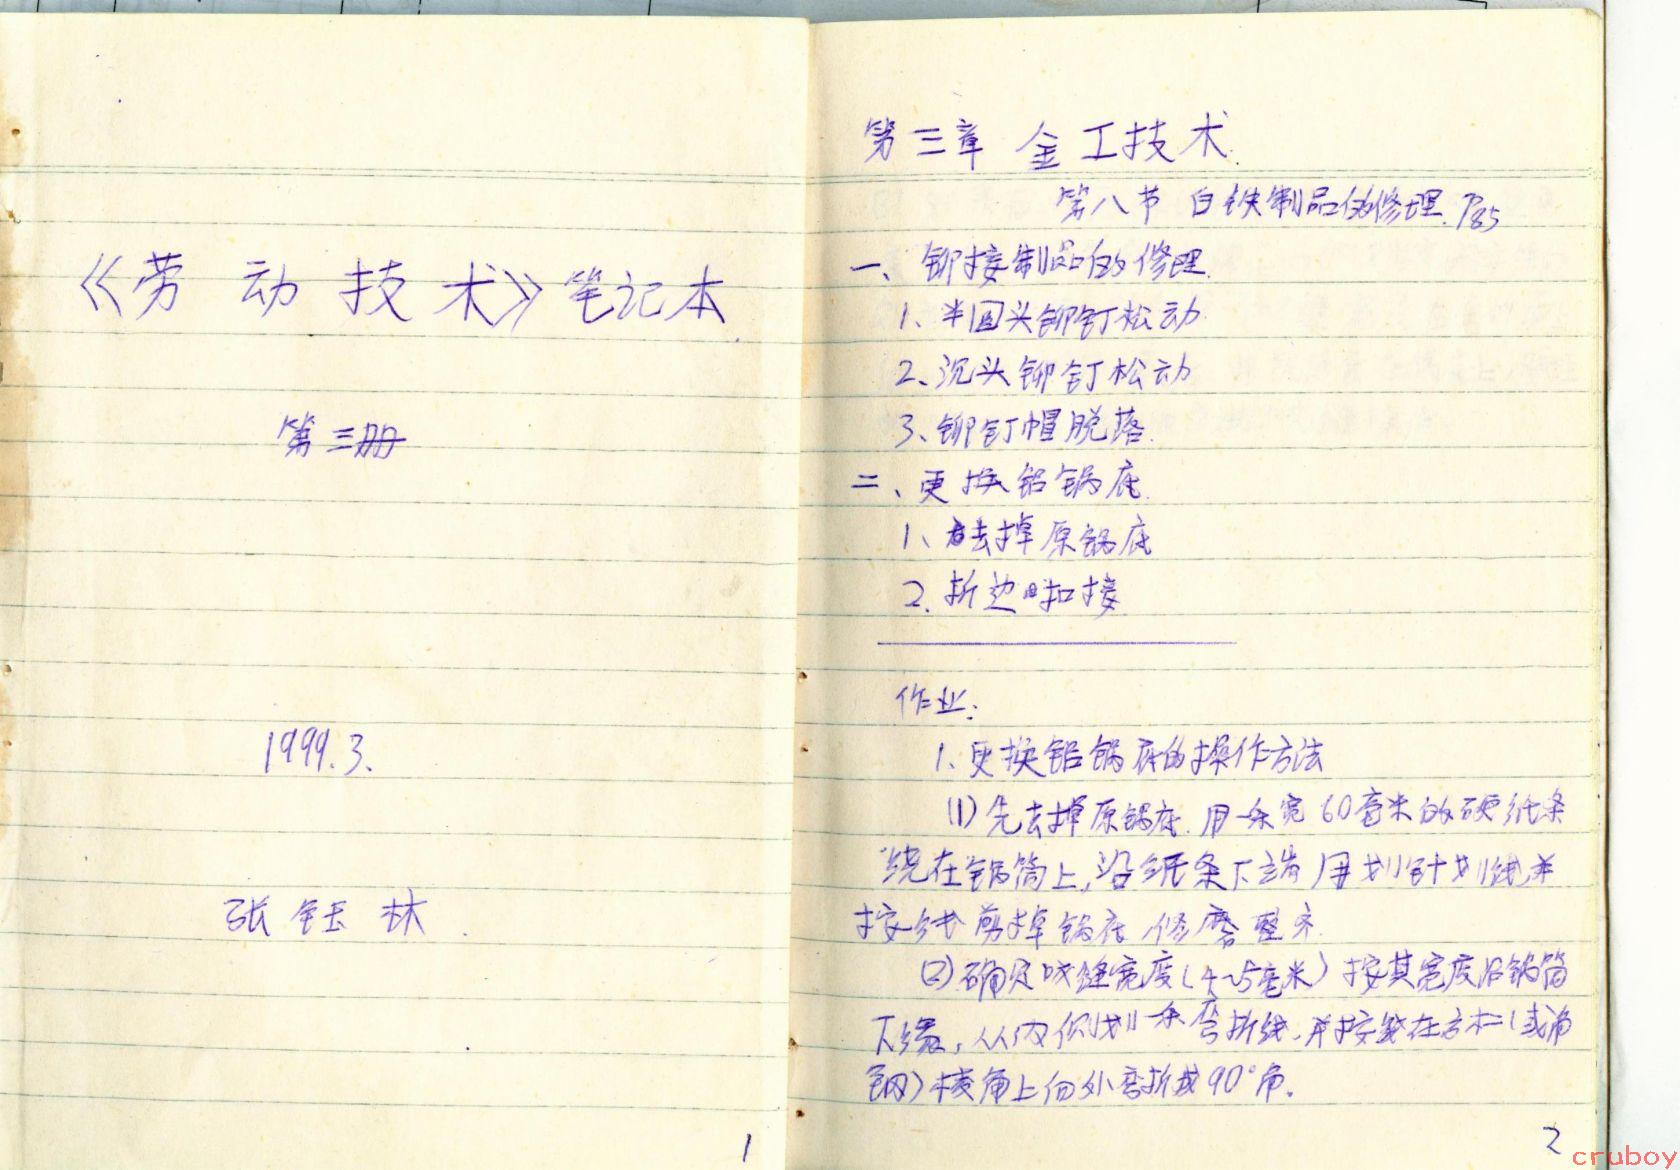 《劳动技术》笔记本
第三册
1999.3.
张钰林.
1
第三章 金工技术.
第八节 白铁制品的修理. P85
一、铆接制品的修理.
1、半圆头铆钉松动
2、沉头铆钉松动
3、铆钉帽脱落.
二、更换铝锅底.
1、去掉原锅底
2.折边咀扣接
作业:
1.更换铝锅底的操作方法
(1)先去掉原锅底.用一条宽60毫米的硬纸条
绕在锅筒上,沿纸条下端用划针划线并
按线剪掉锅底,修磨整齐.
(2)确定咬缝宽度(4~5毫米)按其宽度沿锅筒
下缘,从内侧划一条弯折线.并按线在方杠(或角
钢)棱角上向外弯折成90°角.
2
cruboy